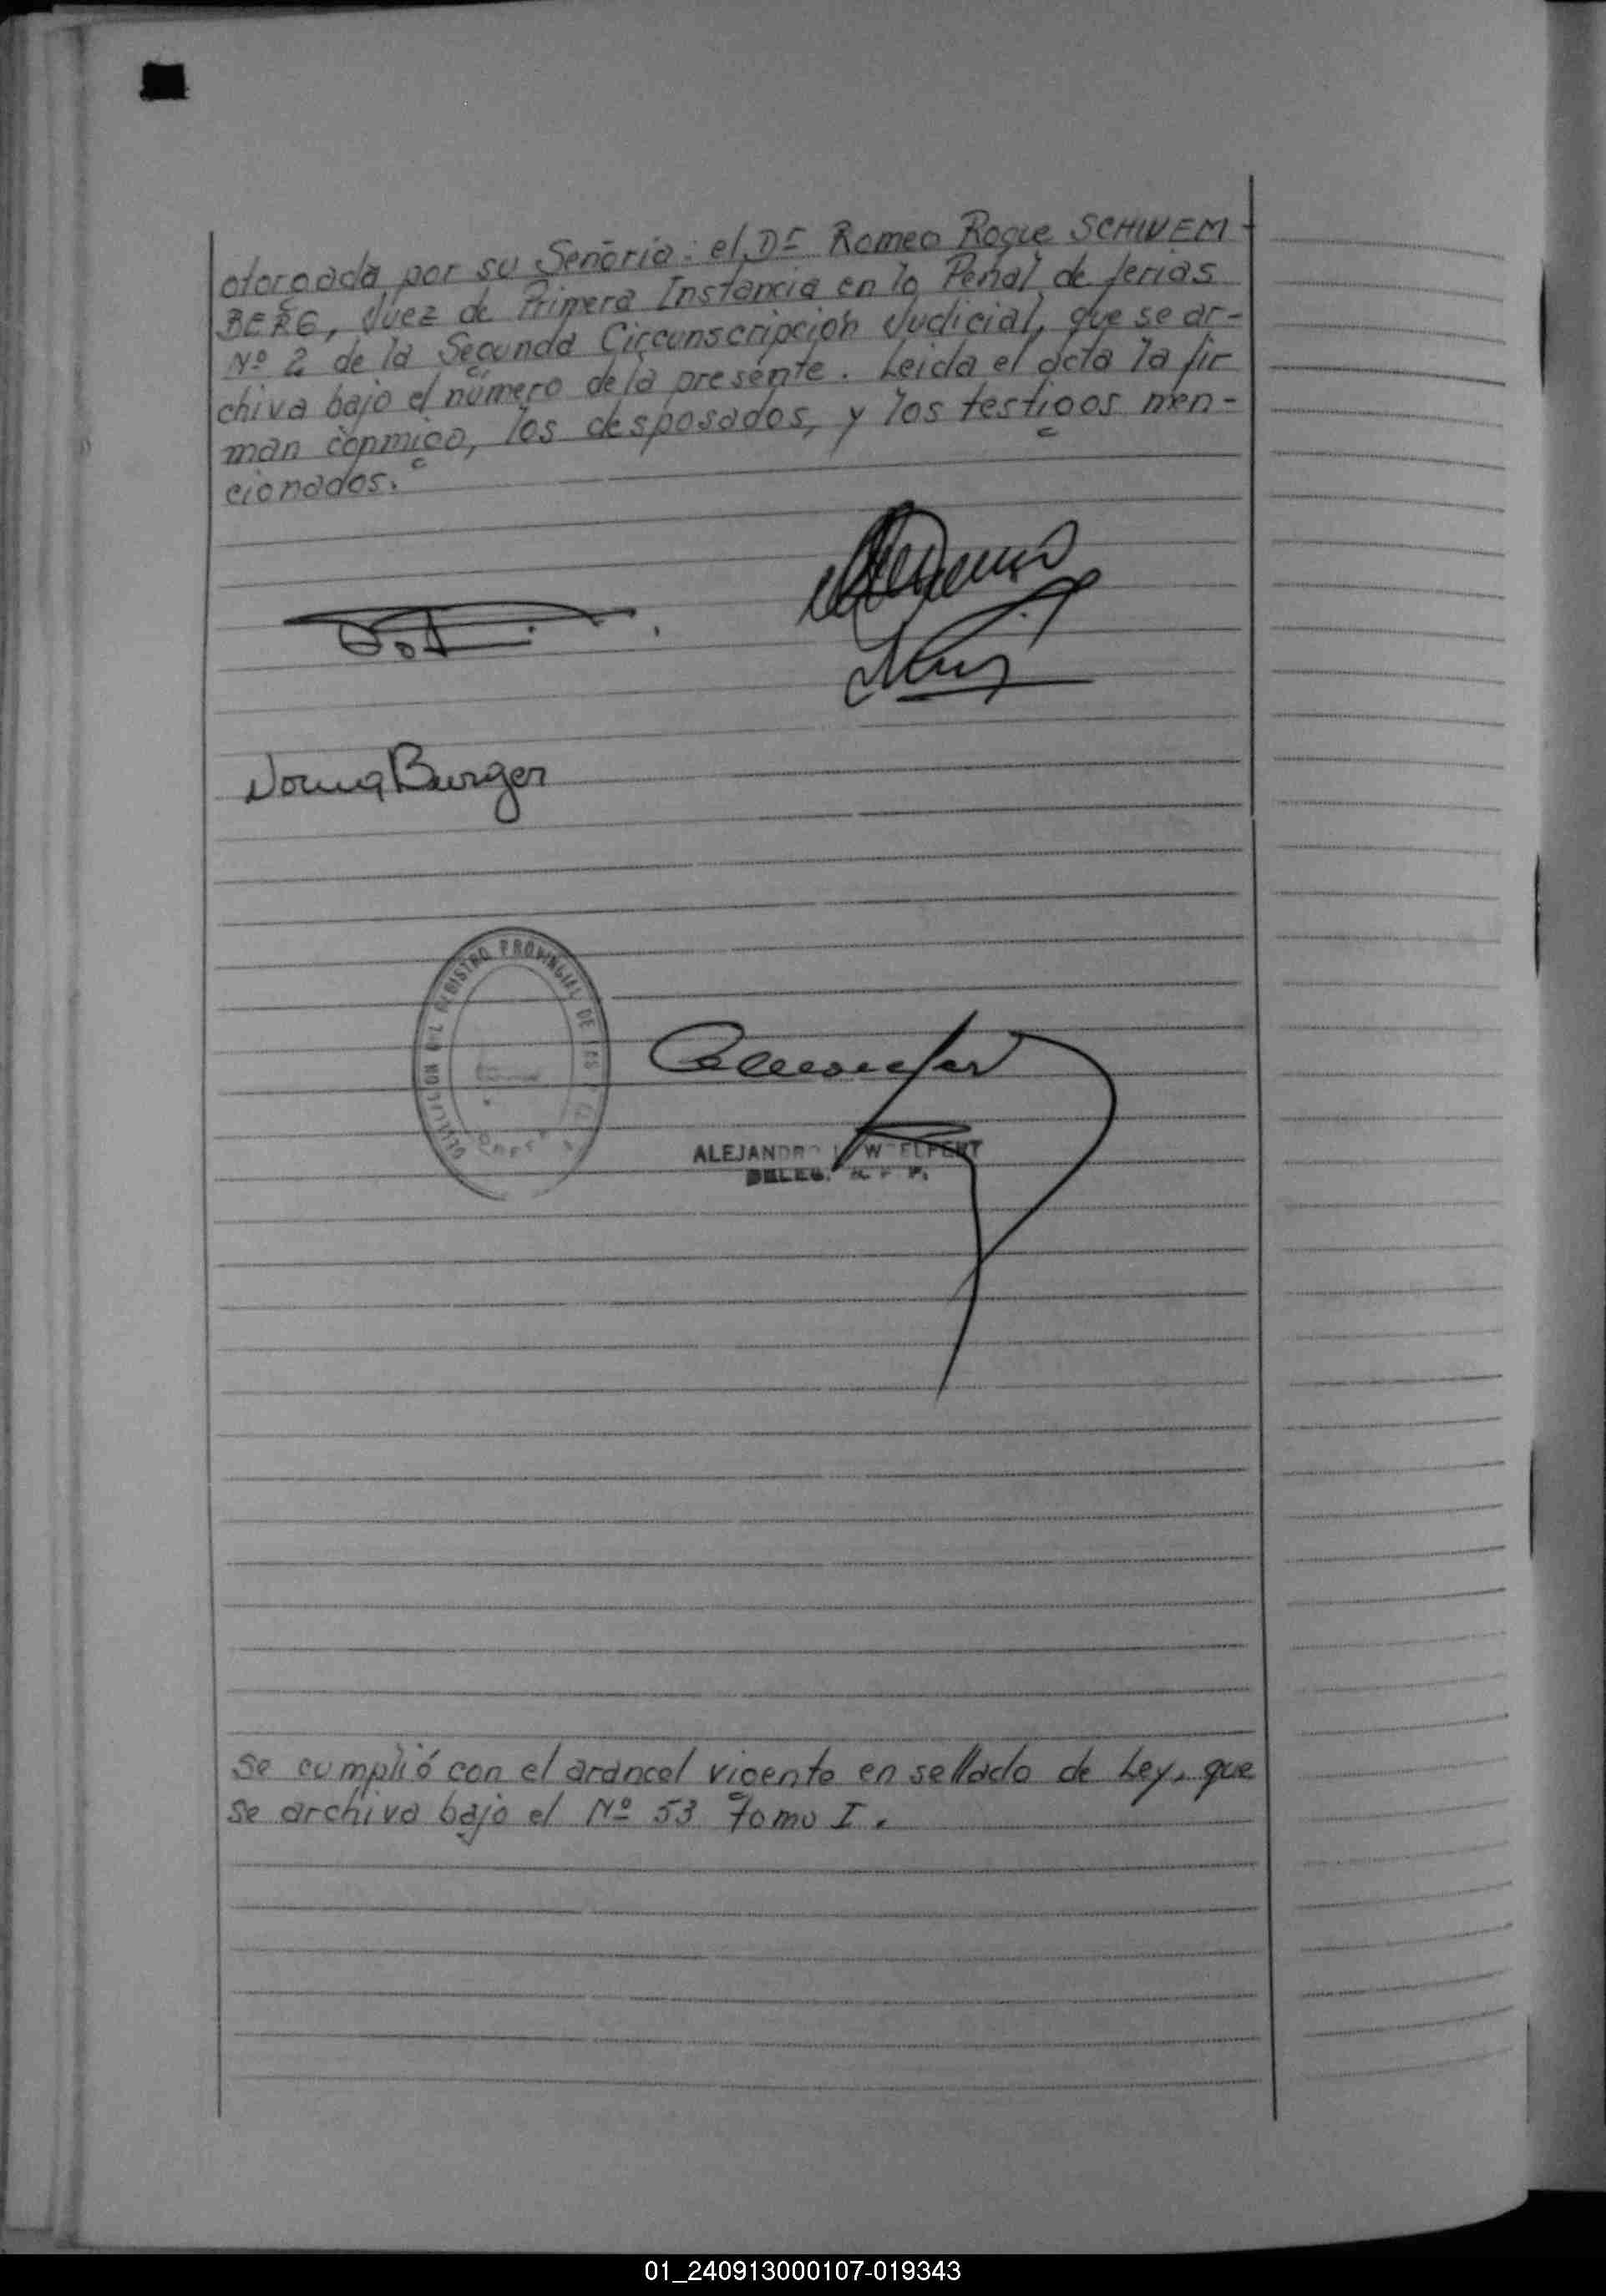 otorgada por su Señoría: el Dr Romeo Roque SCHIVEM-
BERG, Juez de Primera Instancia en lo Penal de ferias
Nº 2 de la Segunda Circunscripción Judicial, que se ar-
chiva bajo el número de la presente. Leida el acta la fir
man conmigo, los desposados, y los testigos men-
cionados.
Norma Burger
REGISTRO PROVINCIAL DE LAS
ALEJANDRO
DELEG. R. P.
Se cumplió con el arancel vigente en sellado de Ley, que
se archiva bajo el Nº 53 Tomo I.
01_240913000107-019343